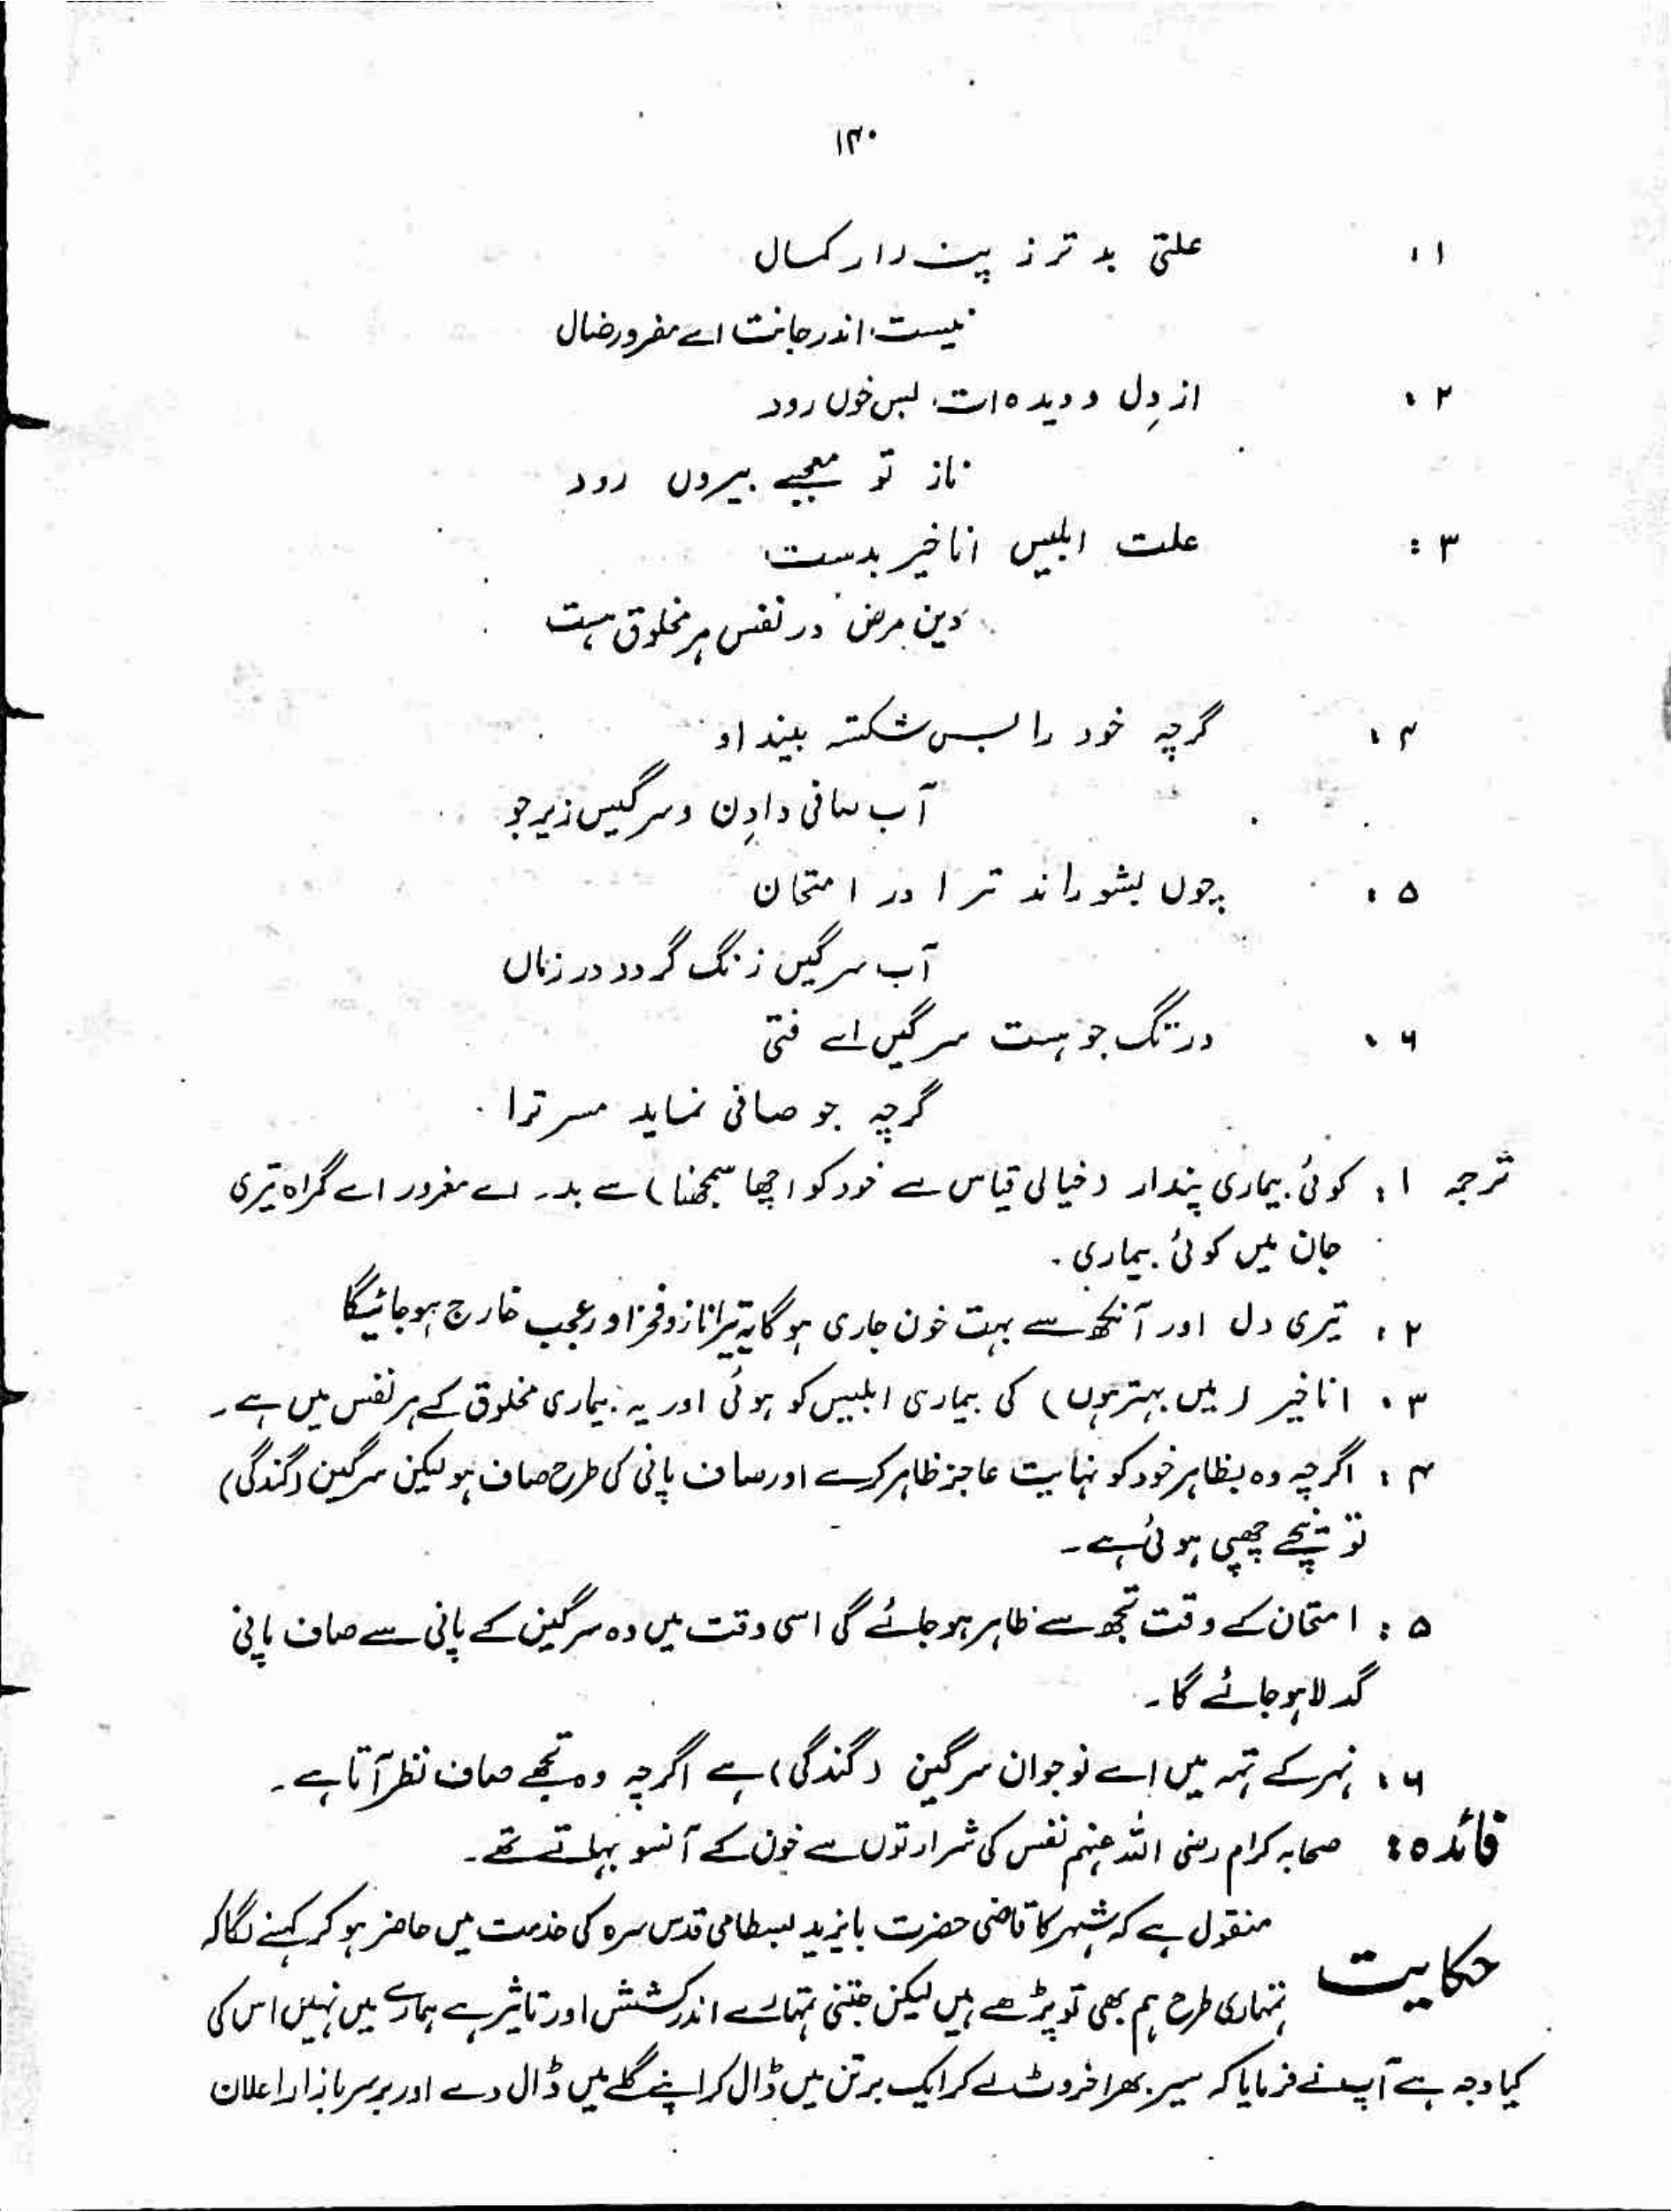 ۱۴۰
۱: علتی بد تر ز پندار کمال
نیست اندر جانت اے مغرور ضال
۲: از دِل و دیدہ ات بس خوں رود
ناز تو معجبے بیروں رود
۳: علت ابلیس انا خیر بدست
وین مرض در نفس ہر مخلوق ہست
۴: گرچہ خود را بس شکستہ بیند او
آب صافی دادِن و سرگیں زیر جو
۵: چوں بشوراند ترا در امتحان
آب سرگیں زنگ گردد در زماں
۶: در تگ جو ہست سرگیں اے فتی
گرچہ جو صافی نماید مسر ترا
ترجمہ ۱: کوئی بیماری پندار (خیالی قیاس سے خود کو اچھا سمجھنا) سے بد۔ اے مغرور اے گمراہ تیری
جان میں کوئی بیماری۔
۲: تیری دل اور آنکھ سے بہت خون جاری ہوگا یہ تیرا ناز و فخر اور عجب خارج ہو جائیگا
۳: انا خیر (میں بہتر ہوں) کی بیماری ابلیس کو ہوئی اور یہ بیماری مخلوق کے ہر نفس میں ہے۔
۴: اگرچہ وہ بظاہر خود کو نہایت عاجز ظاہر کرے اور صاف پانی کی طرح صاف ہو لیکن سرگین (گندگی)
تو نیچے چھپی ہوئی ہے۔
۵: امتحان کے وقت تجھ سے ظاہر ہو جائے گی اسی وقت میں وہ سرگین کے پانی سے صاف پانی
گدلا ہو جائے گا۔
۶: نہر کے تہہ میں اے نوجوان سرگین (گندگی) ہے اگرچہ وہ تجھے صاف نظر آتا ہے۔
فائدہ: صحابہ کرام رضی اللہ عنہم نفس کی شرارتوں سے خون کے آنسو بہاتے تھے۔
حکایت منقول ہے کہ شہر کا قاضی حضرت بایزید بسطامی قدس سرہ کی خدمت میں حاضر ہو کر کہنے لگا کہ
تمہاری طرح ہم بھی تو پڑھے ہیں لیکن جتنی تمہارے اندر کشش اور تاثیر ہے ہمارے میں نہیں اس کی
کیا وجہ ہے آپ نے فرمایا کہ سیر بھر اخروٹ لے کر ایک برتن میں ڈال کر اپنے گلے میں ڈال دے اور برسر بازار اعلان